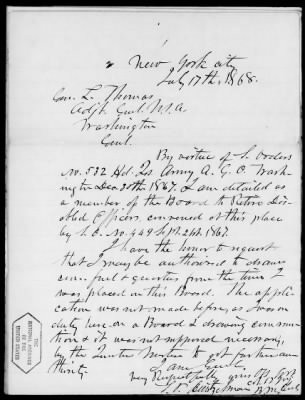 New York city
July 17th, 1868.
Gen. L. Thomas
Adjt. Genl. U.S.A.
Washington
Genl.
By virtue of S. Orders
No. 532 Hd. Qrs Army A.G.O. Wash-
ington Dec. 20th 1867. I am detailed as
a member of the Board to Retire Dis-
abled Officers convened at this place
by S.O. No. 449 Sept. 21st 1867.
I have the honor to request
that I may be authorized to draw
fuel & quarters from the time I
was placed on this Board. The appli-
cation was not made before, as I was on
duty here on a Board & drawing commu-
tation & it was not supposed necessary
by the Quarter Master to get further au-
thority.
I am Genl.
very Respectfully your
S. P. Heintzelman
THE
NATIONAL ARCHIVES
OF THE
UNITED STATES